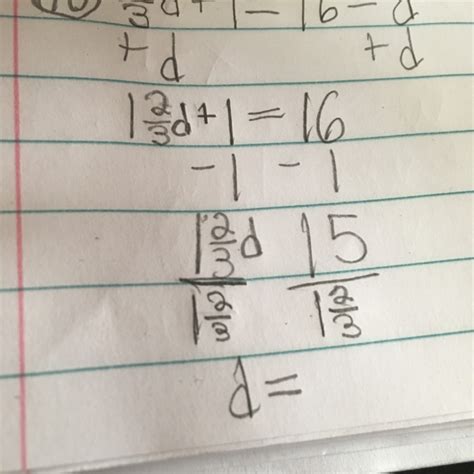 2/3 d + 1 = 16 - d
+ d + d
1 2/3 d + 1 = 16
- 1 - 1
1 2/3 d 15
1 2/3 1 2/3
d =